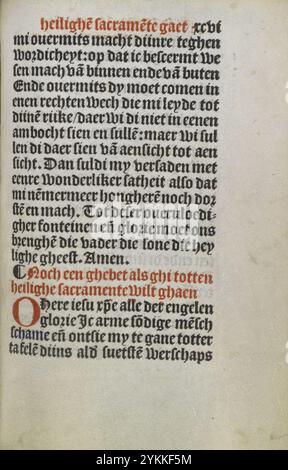 heilighē sacramēte gaet xcvi
mi ouermits macht dijnre teghen
wordicheyt: op dat ic bescermt we
sen mach vā binnen ende vā buten
Ende ouermits dy moet comen in
enen rechten wech die mi leyde tot
dijnē rijke/ daer wi di niet in eenen
ambocht sien en sullē: maer wi sul
len di daer sien vā aensicht tot aen
sicht. Dan suldi my versaden met
eenre wonderliker satheit also dat
mi nēmermeer hōgherē noch dor
stē en mach. Tot deser oueruloedi
gher fonteinen eñ glorie moet ons
brenghē die vader die sone die hey
lighe gheest. Amen.
Noch een ghebet als ghi totten
heilighe sacramente wilt ghaen
O here iesu xp̄e alle der engelen
glorie Jc arme sōdige mēsch
schame eñ ontsie my te gane totter
tafelē dijns ald̄ suetstē werschaps
alamy
Image ID: 2YKKF5M
www.alamy.com